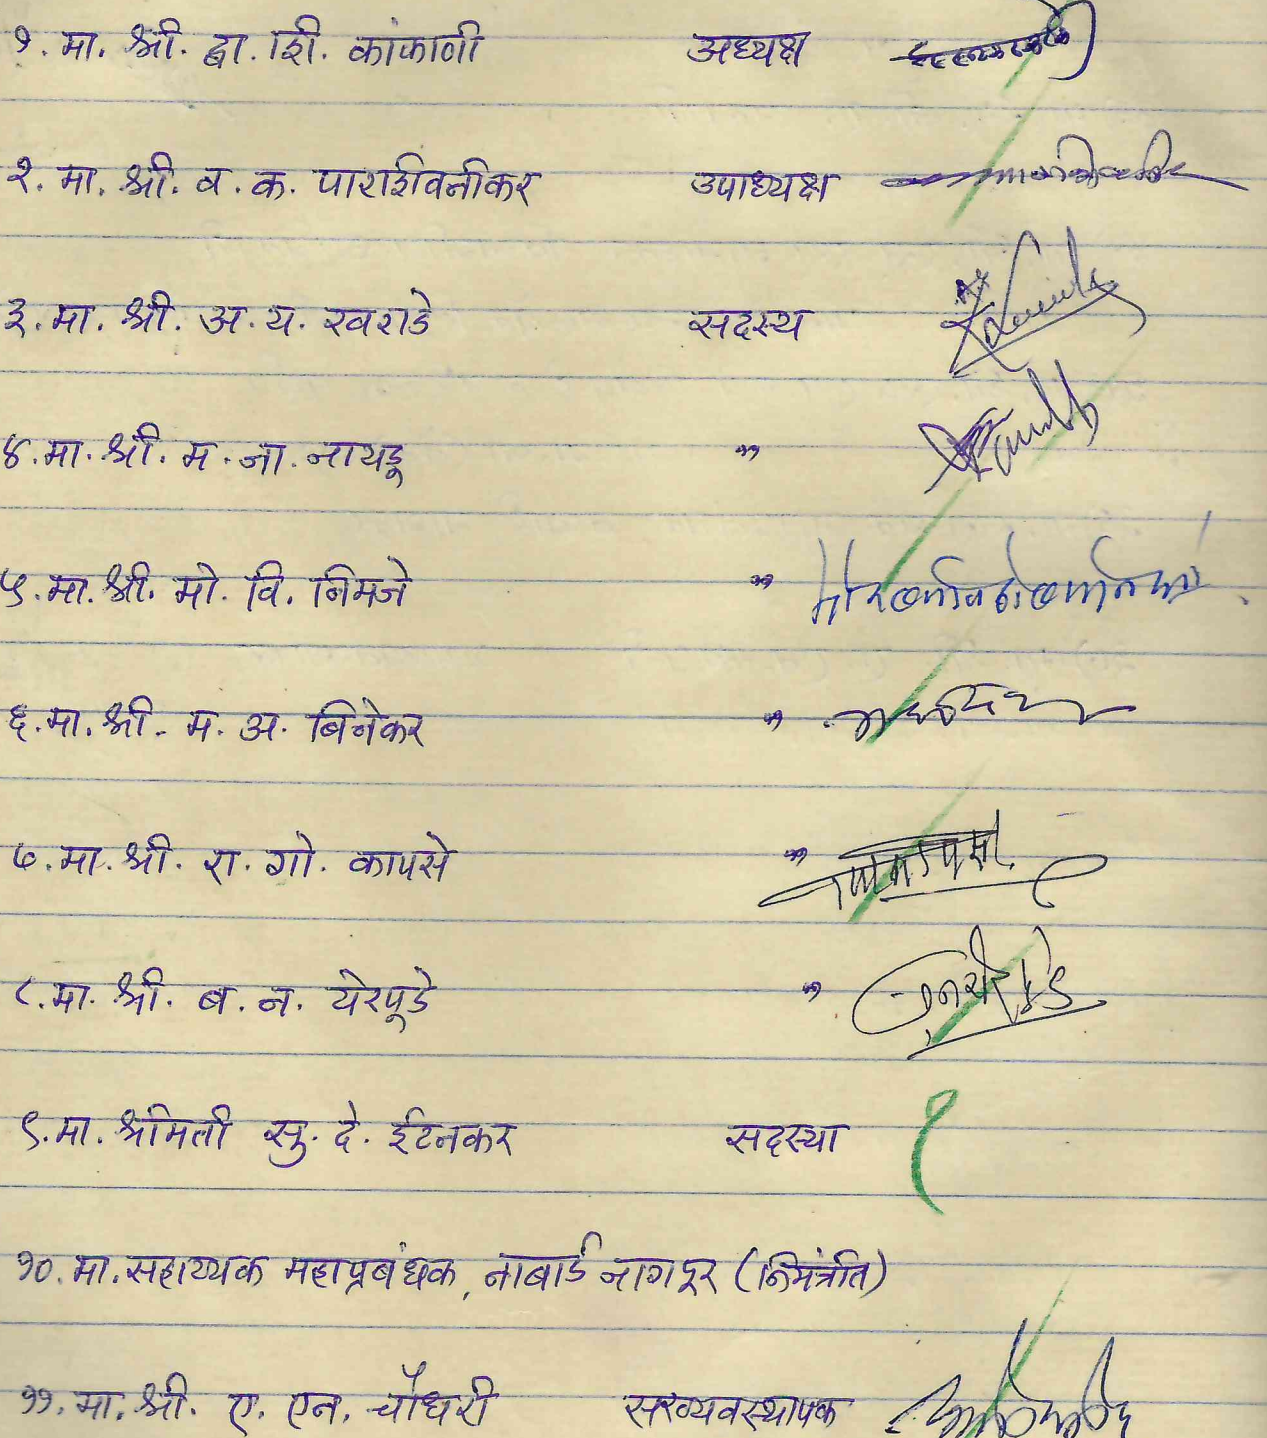 १. मा. श्री. द्वा. शि. कांकाणी अध्यक्ष
२. मा. श्री. व. क. पाराशिवनीकर उपाध्यक्ष
३. मा. श्री. अ. य. खराडे सदस्य
४. मा. श्री. म. जा. नायडू "
५. मा. श्री. मो. वि. निमजे "
६. मा. श्री. म. अ. बिनेकर "
७. मा. श्री. रा. गो. कापसे "
८. मा. श्री. ब. न. येरपूडे "
९. मा. श्रीमती सु. दे. ईटनकर सदस्या
१०. मा. सहाय्यक महाप्रबंधक, नाबार्ड नागपूर (निमंत्रीत)
११. मा. श्री. ए. एन. चौधरी सरव्यवस्थापक